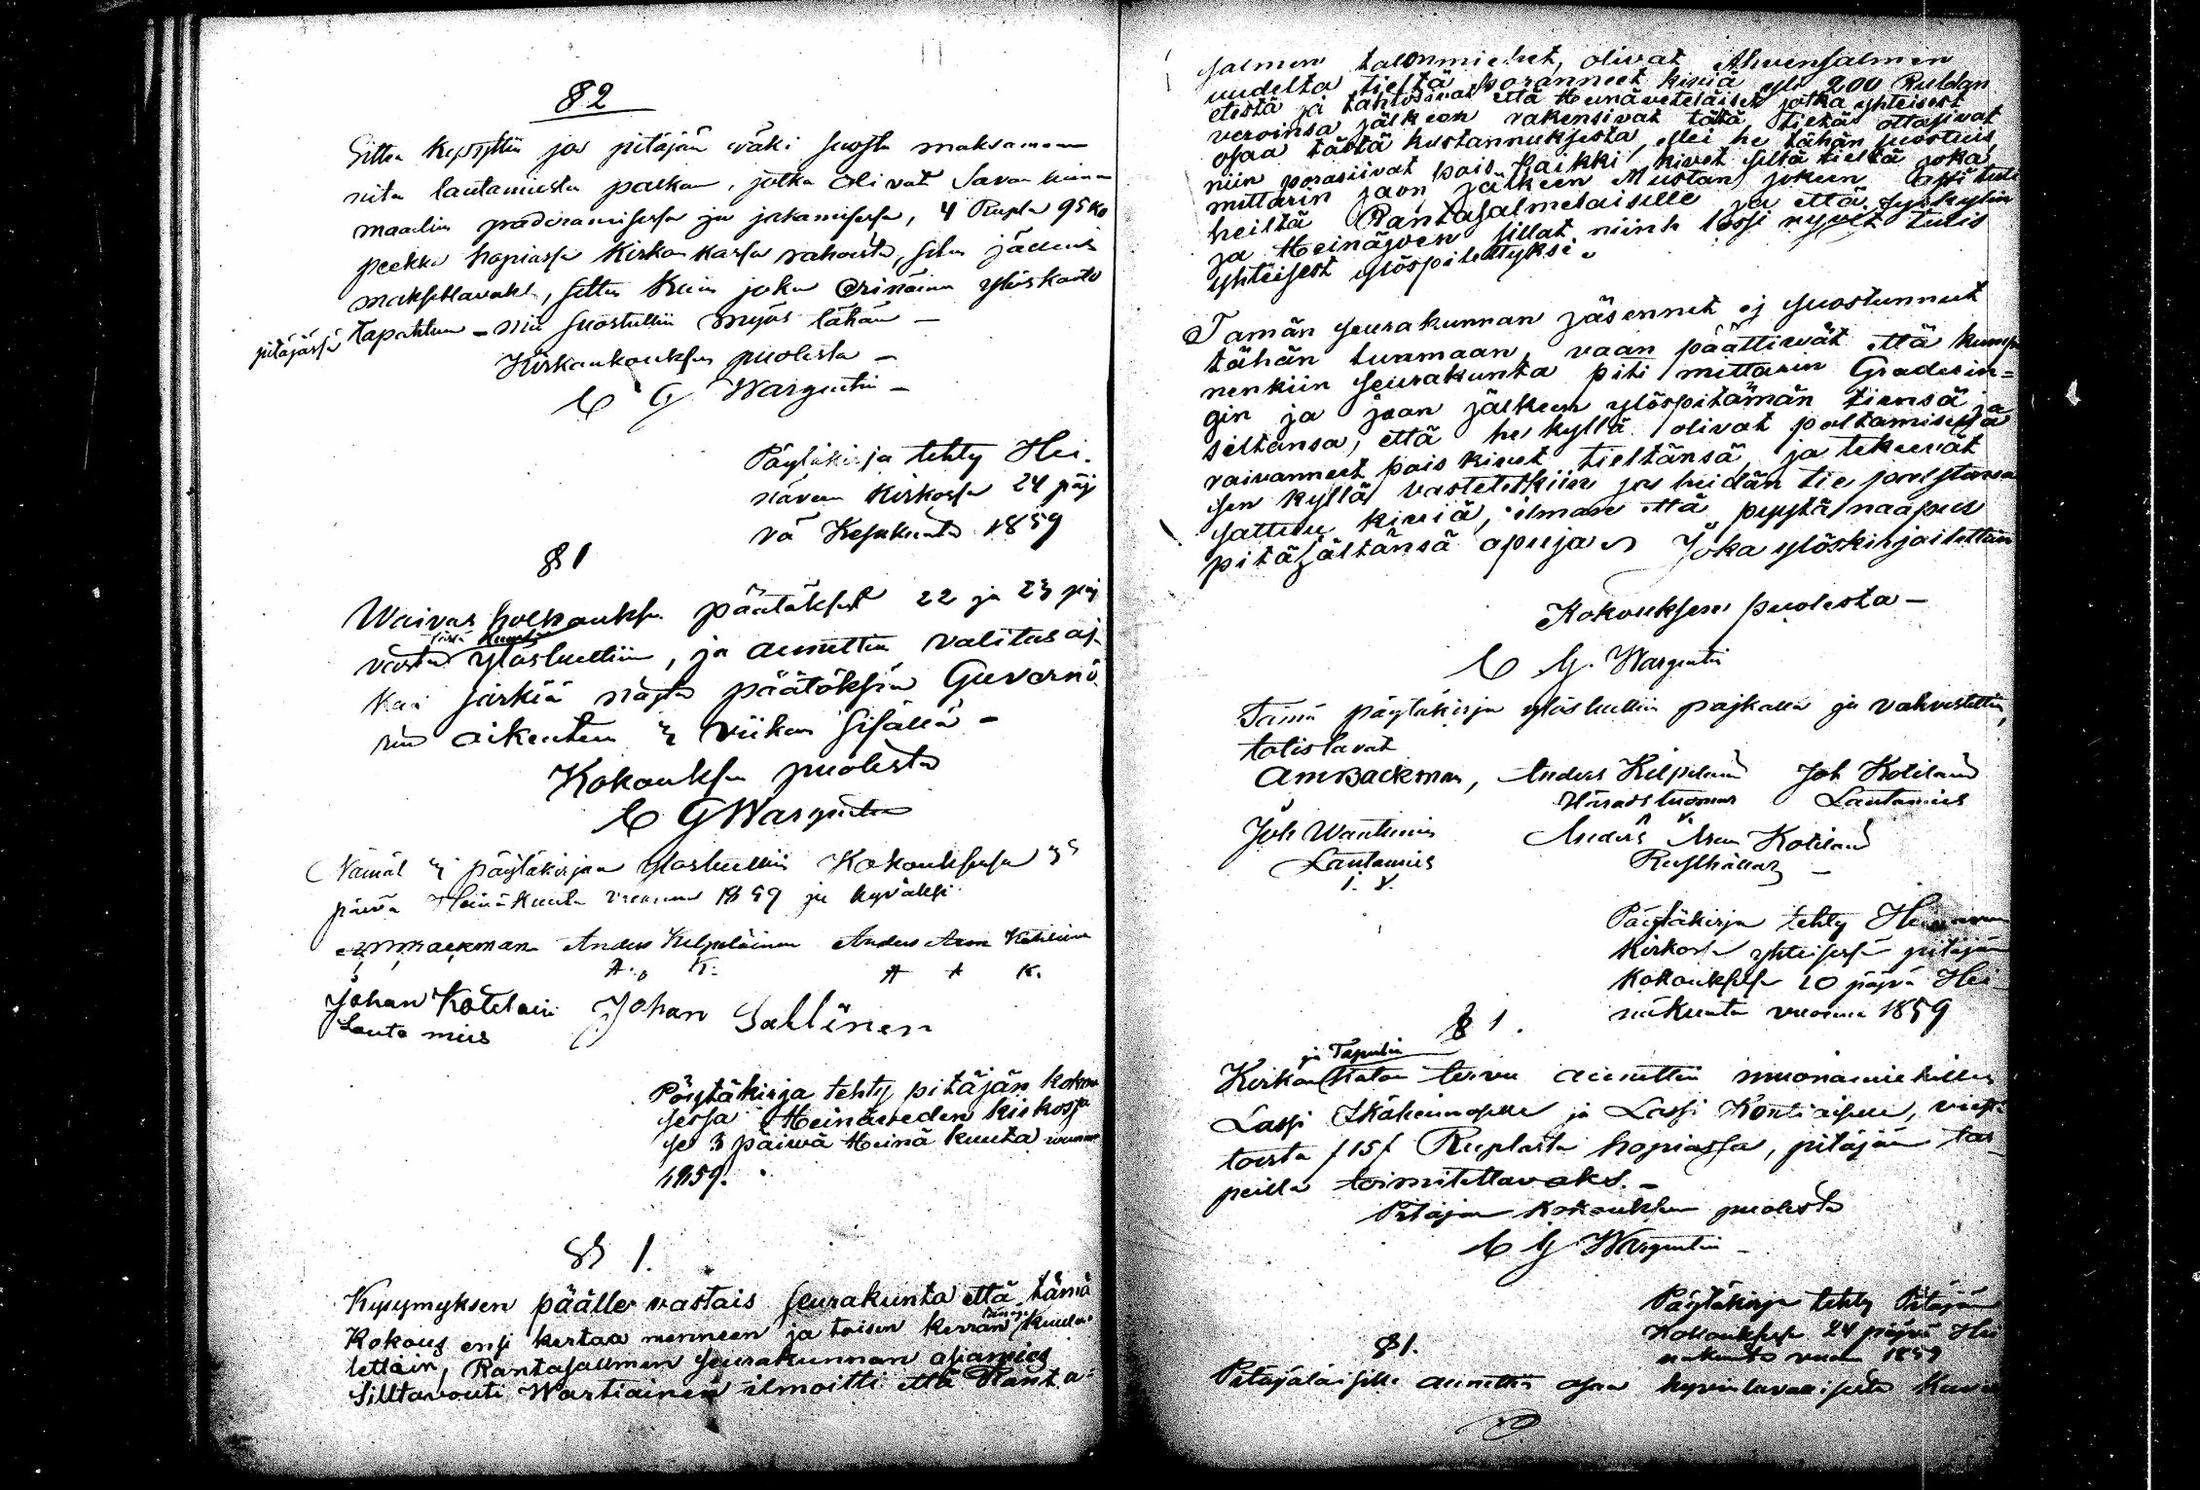 § 2
Sitten kysyttiin jos pitäjän väki suostu maksamaan
niitä lautamiesten palkan, jotka olivat Savon
maalin ja jakamisessa, 4 Rupla 95 Ko
peekka hopiassa Kirkon kassa rahoista,
maksettavaks, sitten kuin joku erinäinen ylöskanto
pitäjässä tapahtuu – niin suostuttiin myös tähän –
Kirkonkouksen puolesta –
C G Wargentin –
Pöytäkirja tehty Hei-
näveen Kirkossa 24 päi
vä Kesäkuuta 1859
§ 1
Waivas holhouksen päätökset 22 ja 23 päi
västä tässä kuussa ylösluettiin, ja annettiin valitus ai-
kaa näitä päätöksiä Guvernö
rin oikeuteen viikon sisällä –
Kokouksen puolesta
C G Wargentin
Nämät pöytäkirjaa ylösluettiin Kokouksessa 3
päivä Heinäkuuta vuonna 1859 ja hyväksi
A M Backman Anders Kilpeläinen Anders Aron Kotilainen
A. K. A A K.
Johan Kotelain Johan Sallinen
Lauta mies
Pöytäkirja tehty pitäjän kokouk
sessa Heinäveden kirkossa
se 3 päiwä Heinä kuuta wuonna
1859.
§ 1.
Kysymyksen päälle vastais seurakunta että tämä
Kokous ensi kertaa menneen ja toisen kerran tänäpä kuulu-
tettain, Rantasalmen seurakunnan asiamies
Silltavouti Wartiainen ilmoitti että Ranta-
salmen talonmiehet, olivat Ahvensalmen
uudelta tieltä poranneet kiviä yli 200 Rublan
etestä ja tahtoisivat että Heinäveteläiset jotka yhteisest
veroinsa jälkeen rakensivat tätä tietä ottasivat
osaa tästä kustannuksesta, ellei he tähän suostuis
niin porasiivat pois kaikki kivet siltä tieltä joka
mittarin jaon jälkeen Mustan jokeen
heiltä Rantasalmelaiselle ja että Syskylän
ja Heinäjoen sillat niinh lossi nyvit tulis
yhteisest ylöspitettyksi.
Tämän seurakunnan jäsennet ej suostunneet
tähän tuumaan, vaan päättiwät että kumpa
nenkiin seurakunta piti mittarin Graderin-
gin ja jaon jälkeen ylöspitämän tiensä ja
siltansa, että he kyllä olivat poltamisella
raivanneet pois kivet tieltänsä, ja tekeevät
sen kyllä vastetetkiin jos heidän tie
sattuu kiviä, ilman että pyytä naapur
pitäjältänsä apuja. Joka ylöskirjoitettiin
Kokouksen puolesta –
C G. Wargentin
Tämä pöytäkirja ylösluettiin pajkalla ja vahvistettiin,
totistavat
A M Backman, Anders Kilpeläinen Joh Kotilain
Häradstuomar Lautamies
Joh Wartiainen Anders Aron Kotilain
Lautamies Rusthållar –
J. V.
Pöytäkirja tehty Heinäveen
Kirkossa yhteisessä pitäjän
Kokouksessa 10 päivä Hei-
näkuuta vuonna 1859
§ 1.
Kirkon ja Tapulin katon tervu annettiin muonamiehille
Lassi Ikäheimoselle ja Lassi Kontiaiselle, viist
toista /15/ Ruplasta hopiassa, pitäjän tar-
peilla toimitettavaks. –
Pitäjän Kokouksen puolesta
C G Wargentin –
Pöytäkirja tehty Pitäjän
Kokouksessa 24 päivä Hei
näkuuta vuonna 1859
§ 1.
Pitäjäläisille annettiin